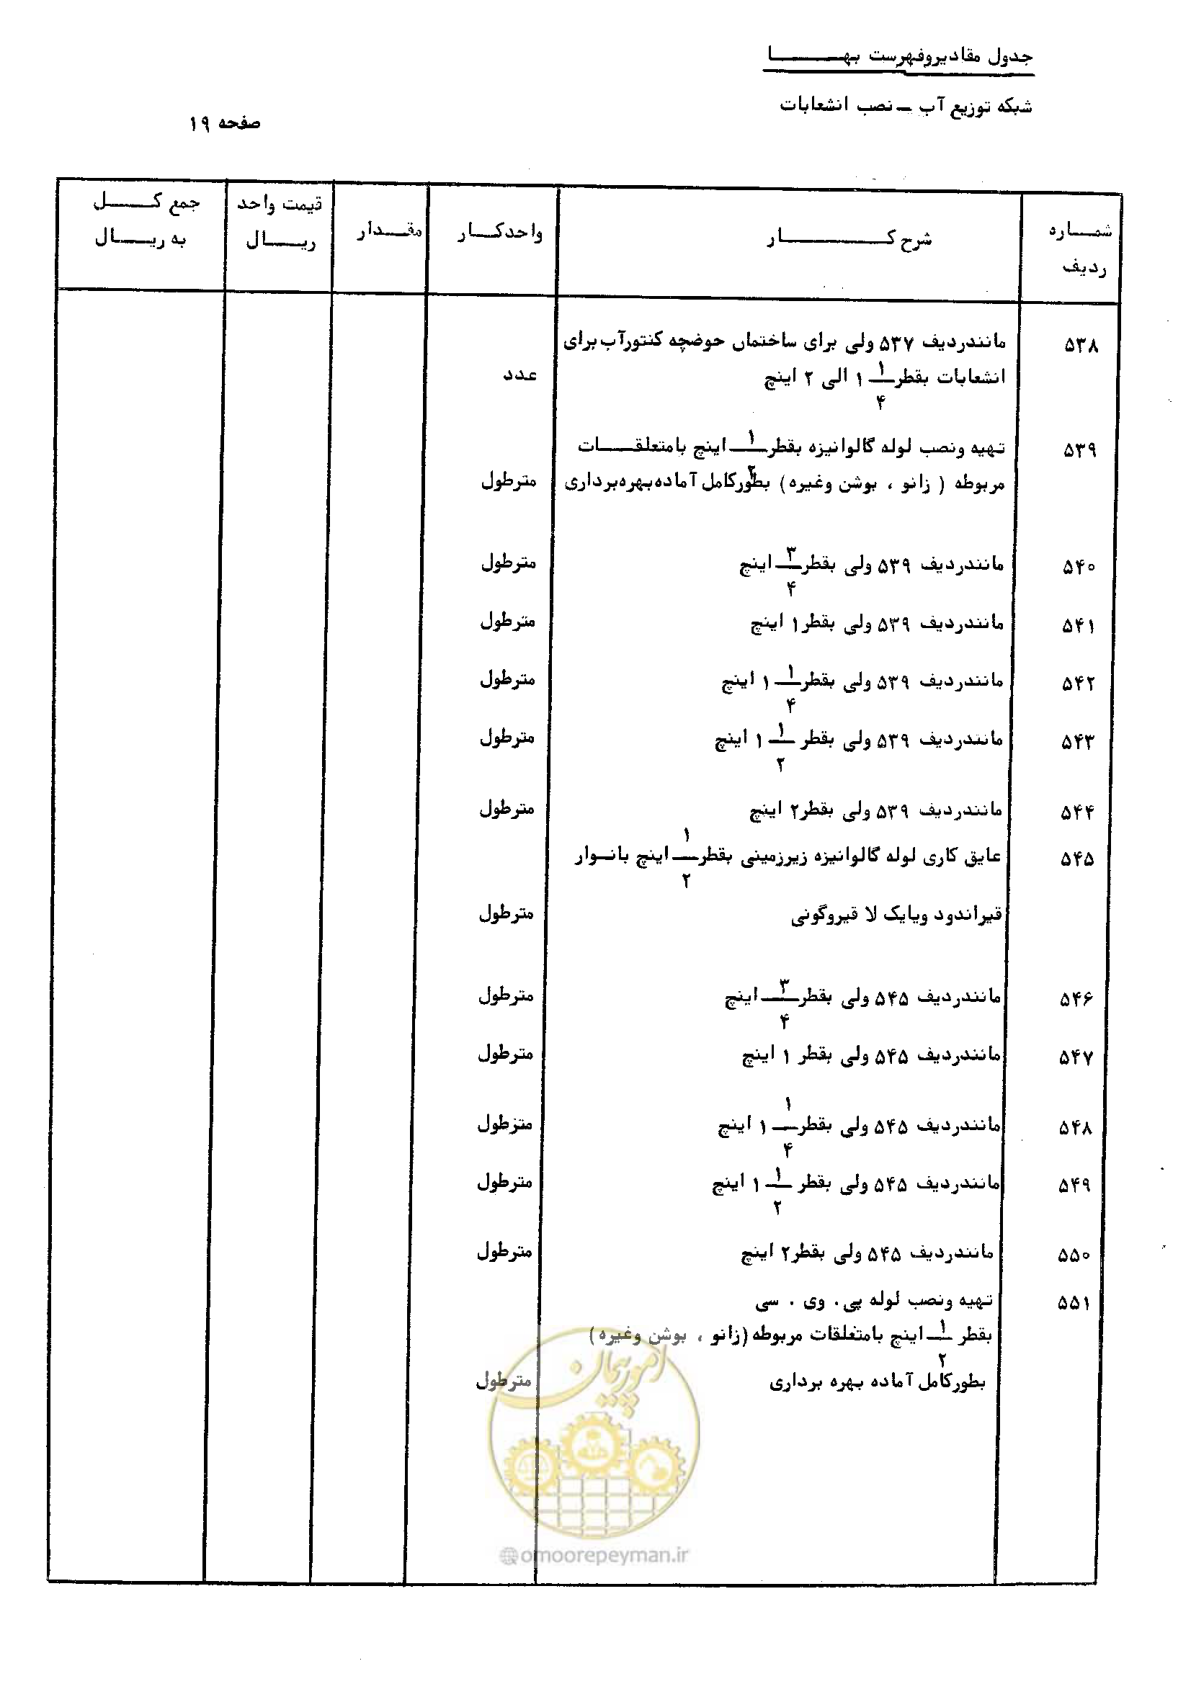 جدول مقادیر و فهرست بهــــا
شبکه توزیع آب ـ نصب انشعابات
صفحه ۱۹
شمـاره ردیف | شرح کـــــــار | واحدکـار | مقـدار | قیمت واحد ریـــال | جمع کــــل به ریـــال
۵۳۸ مانندردیف ۵۳۷ ولی برای ساختمان حوضچه کنتورآب برای
انشعابات بقطر ۱ ۱/۴ الی ۲ اینچ عدد
۵۳۹ تهیه ونصب لوله گالوانیزه بقطر ۱/۲ اینچ بامتعلقــات
مربوطه ( زانو ، بوشن وغیره) بطورکامل آماده بهره برداری مترطول
۵۴۰ مانندردیف ۵۳۹ ولی بقطر ۳/۴ اینچ مترطول
۵۴۱ مانندردیف ۵۳۹ ولی بقطر ۱ اینچ مترطول
۵۴۲ مانندردیف ۵۳۹ ولی بقطر ۱ ۱/۴ اینچ مترطول
۵۴۳ مانندردیف ۵۳۹ ولی بقطر ۱ ۱/۲ اینچ مترطول
۵۴۴ مانندردیف ۵۳۹ ولی بقطر ۲ اینچ مترطول
۵۴۵ عایق کاری لوله گالوانیزه زیرزمینی بقطر ۱/۲ اینچ بانـوار
قیراندود ویایک لا قیروگونی مترطول
۵۴۶ مانندردیف ۵۴۵ ولی بقطر ۳/۴ اینچ مترطول
۵۴۷ مانندردیف ۵۴۵ ولی بقطر ۱ اینچ مترطول
۵۴۸ مانندردیف ۵۴۵ ولی بقطر ۱ ۱/۴ اینچ مترطول
۵۴۹ مانندردیف ۵۴۵ ولی بقطر ۱ ۱/۲ اینچ مترطول
۵۵۰ مانندردیف ۵۴۵ ولی بقطر ۲ اینچ مترطول
۵۵۱ تهیه ونصب لوله پی. وی. سی
بقطر ۱/۲ اینچ بامتعلقات مربوطه (زانو ، بوشن وغیره)
بطورکامل آماده بهره برداری مترطول
امور پیمان
@omoorepeyman.ir